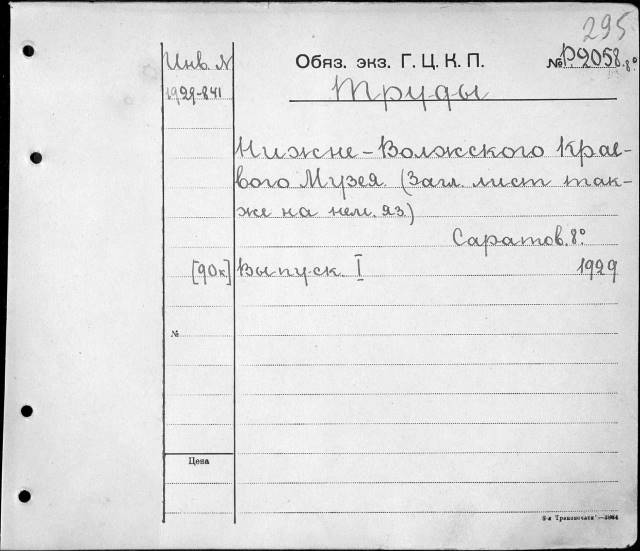 295
Инв. №
Обяз. экз. Г. Ц. К. П.
№ Р9058. 8°
1929-841
Труды
Нижне-Волжского Крае-
вого Музея. (Загл. лист так-
же на нем. яз.)
Саратов. 8°.
[90к.] Выпуск. I 1929
№
Цена